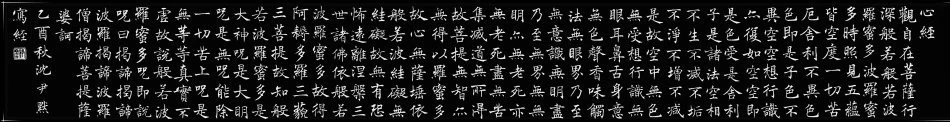 心經
觀自在菩薩行
深般若波羅蜜
多時照見五蘊
皆空度一切苦
厄舍利子色不
異空空不異色
色即是空空即
是色受想行識
亦復如是舍利
子是諸法空相
不生不滅不垢
不淨不增不減
是故空中無色
無受想行識無
眼耳鼻舌身意
無色聲香味觸
法無眼界乃至
無意識界無無
明亦無無明盡
乃至無老死亦
無老死盡無苦
集滅道無智亦
無得以無所得
故菩提薩埵依
般若波羅蜜多
故心無絓礙無
絓礙故無有恐
怖遠離顛倒夢
想究竟涅槃三
世諸佛依般若
波羅蜜多故得
阿耨多羅三藐
三菩提故知般
若波羅蜜多是
大神呪是大明
呪是無上呪是
無等等呪能除
一切苦真實不
虛故說般若波
羅蜜多呪即說
呪曰揭諦揭諦
波羅揭諦波羅
僧揭諦菩提薩
婆訶
乙酉秋沈尹默
寫經